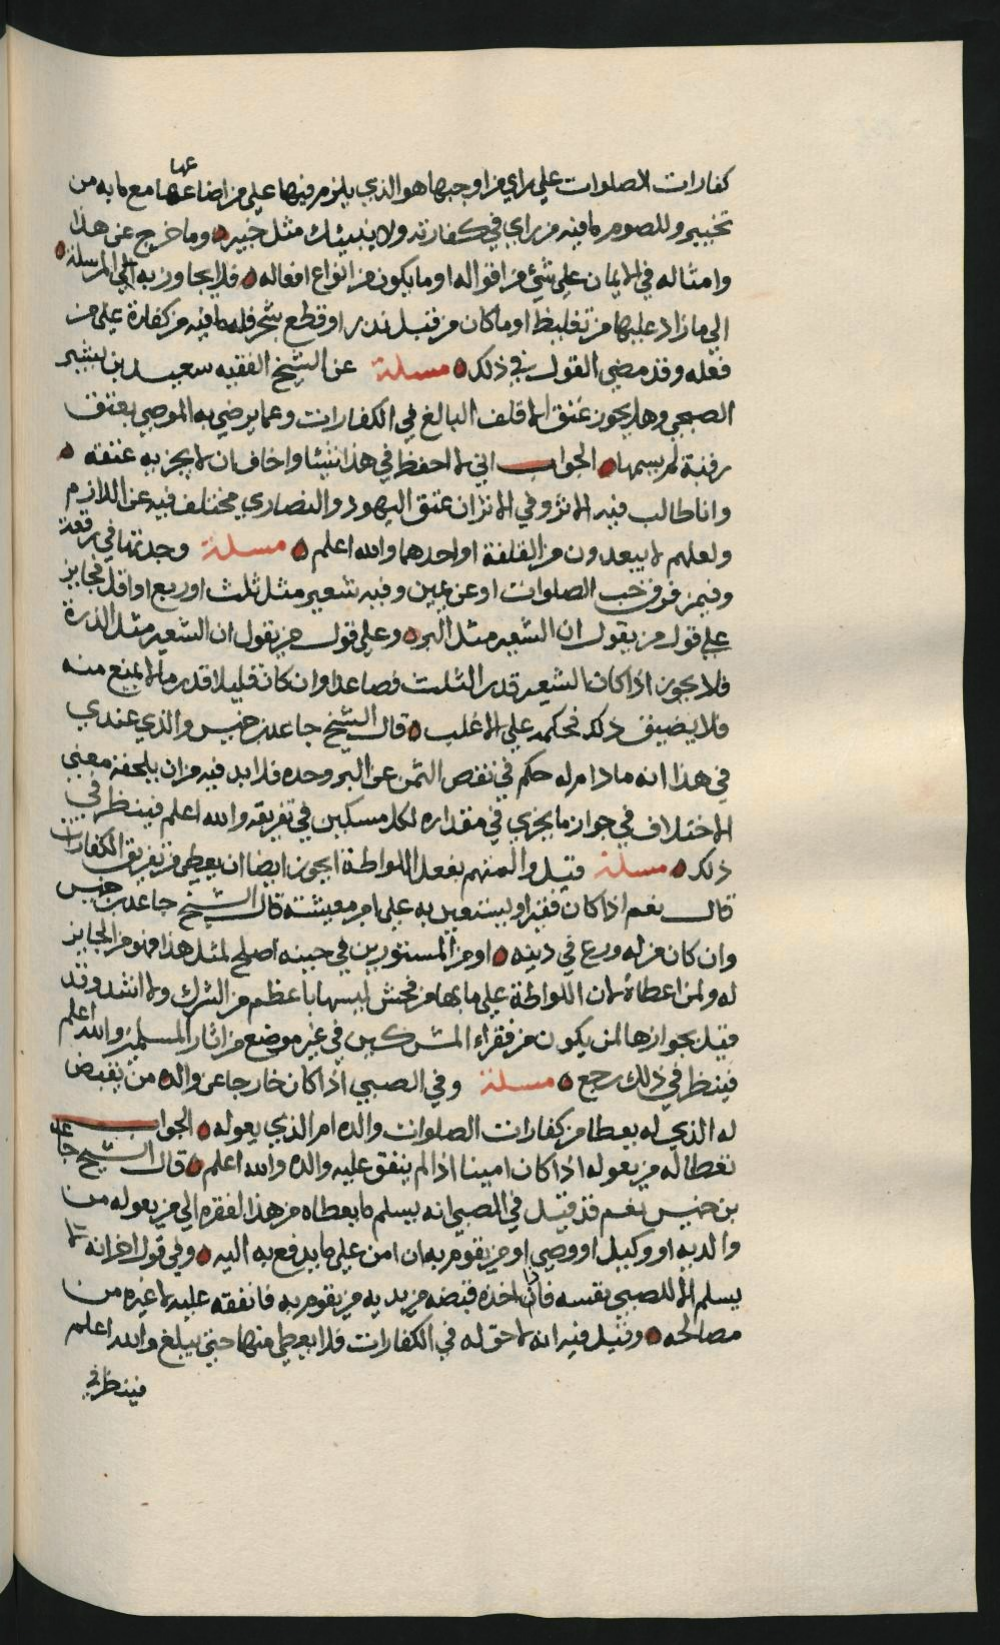 كفارات الصلوات علي راي من اوجبها هو الذي يلزمه فيها علي من اضاعها مع ما به من
تخيير وللصوم ما فيه من راي في كفارته ولا ينبيئك مثل خبير وما خرج عن هذا
وامثاله في الايمان علي شيء من اقواله او ما يكون من انواع افعاله فلا يجاوز به الي المرسلة
الي ما زاد عليها من تغليظ او ما كان من قبل نذر او قطع شجر فله ما فيه من كفارة علي من
فعله وقد مضي القول في ذلك مسلة عن الشيخ الفقيه سعيد بن بشير
الصبحي وهل يجوز عتق الاقلف البالغ في الكفارات وعما يرضي به الموصي بعتق
رقبة لم يسمها الجواب اني لا احفظ في هذا شيئا واخاف ان لا يجزيه عتقه
وانا طالب فيه الاثر وفي الاثر ان عتق اليهود والنصاري مختلف فيه عن اللازم
ولعلهم لا يبعدون من القلفة او احدهما والله اعلم مسلة وجدتها في رقعة
وفيمن فرق حب الصلوات او عن يمين وفيه شعير مثل ثلث او ربع او اقل فجايز
علي قول من يقول ان الشعير مثل البر وعلي قول من يقول ان الشعير مثل الذرة
فلا يجوز اذا كان الشعير قدر الثلث فصاعدا وان كان قليلا قدر ما لا يمنع منه
فلا يضيق ذلك فحكمه علي الاغلب قال الشيخ جاعد بن خميس والذي عندي
في هذا انه ما دام له حكم في نقص الثمن عن البر وحده فلا بد فيه من ان يلحقه معني
الاختلاف في جواز ما يجزي في مقداره لكل مسكين في تفريقه والله اعلم فينظر في
ذلك مسلة قيل والمتهم بفعل اللواطة ايجوز ايضا ان يعطي من تفريق الكفارات
قال نعم اذا كان فقيرا ويستعين به علي امر معيشته قال الشيخ جاعد بن خميس
وان كان من له ورع في دينه او من المستورين في حينه اصلح لمثل هذا فهو من الجايز
له ولمن اعطاه لان اللواطة علي ما بها من فحش ليسها باعظم من الشرك ولا اشد وقد
قيل بجوازها لمن يكون من فقراء المشركين في غير موضع من اثار المسلمين والله اعلم
فينظر في ذلك رجع مسلة وفي الصبي اذا كان خارجا عن والده من يقبض
له الذي له يعطا من كفارات الصلوات والده ام الذي يعوله الجواب
تعطا له من يعوله اذا كان امينا اذا لم ينفق عليه والده والله اعلم قال الشيخ جاعد
بن خميس نعم قد قيل في الصبي انه يسلم ما يعطاه من هذا لفقره الي من يعوله من
والديه او وكيل او وصي او من يقوم به ان امن علي ما يدفع به اليه وفي قول اخر انه لا
يسلم الا للصبي نفسه فاذا اخذه قبضه من يديه من يقوم به فانفقه عليه لا غيره من
مصالحه وقيل فيه انه لا حق له في الكفارات فلا يعطي منها حتي يبلغ والله اعلم
فينظر في